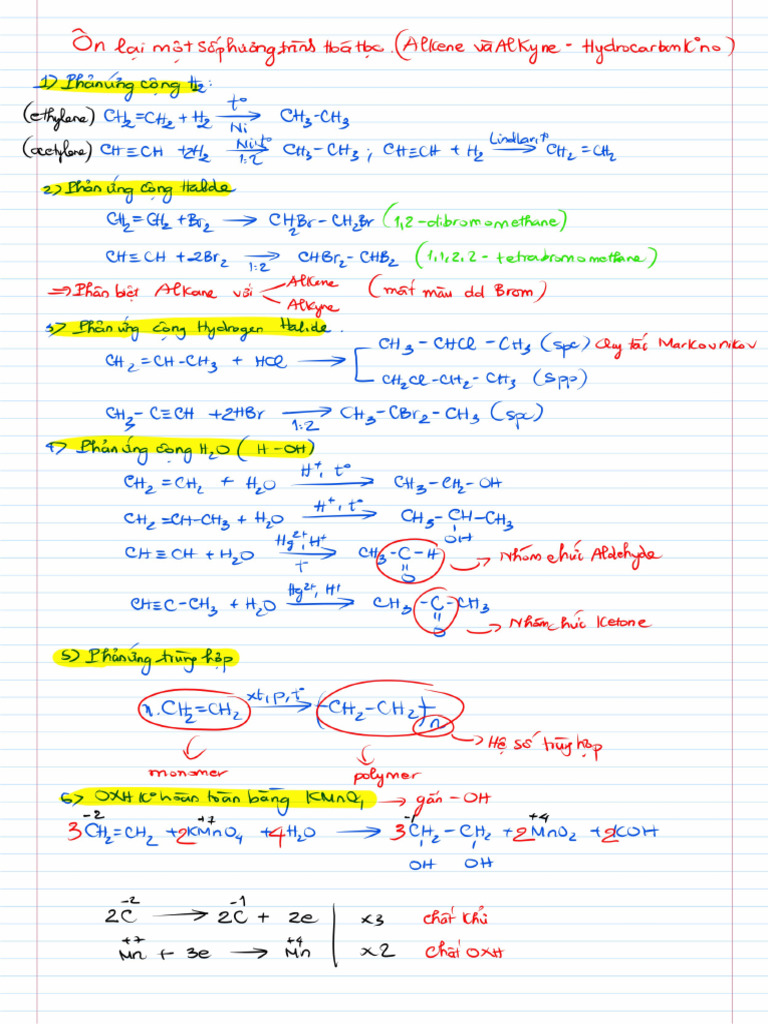 Ôn lại một số phương trình hoá học. (Alkene và Alkyne - Hydrocarbon K° no)
1) Phản ứng cộng H₂:
(ethylene) CH₂=CH₂ + H₂ —t°/Ni→ CH₃-CH₃
(acetylene) CH≡CH + 2H₂ —Ni,t°/1:2→ CH₃-CH₃ ; CH≡CH + H₂ —Lindlar,t°→ CH₂=CH₂
2) Phản ứng cộng Halide
CH₂=CH₂ + Br₂ → CH₂Br-CH₂Br (1,2-dibromomethane)
CH≡CH + 2Br₂ —1:2→ CHBr₂-CHB₂ (1,1,2,2-tetrabromomethane)
⇒ Phân biệt Alkane với Alkene
Alkyne (mất màu dd Brom)
3) Phản ứng cộng Hydrogen Halide.
CH₂=CH-CH₃ + HCl → CH₃-CHCl-CH₃ (spc) Quy tắc Markovnikov
CH₂Cl-CH₂-CH₃ (spp)
CH₃-C≡CH + 2HBr —1:2→ CH₃-CBr₂-CH₃ (spc)
4) Phản ứng cộng H₂O (H-OH)
CH₂=CH₂ + H₂O —H⁺, t°→ CH₃-CH₂-OH
CH₂=CH-CH₃ + H₂O —H⁺, t°→ CH₃-CH-CH₃
OH
CH≡CH + H₂O —Hg²⁺, H⁺/t°→ CH₃-C-H → Nhóm chức Aldehyde
O
CH≡C-CH₃ + H₂O —Hg²⁺, H⁺→ CH₃-C-CH₃
O → Nhóm chức Ketone
5) Phản ứng trùng hợp
n.CH₂=CH₂ —xt,p,t°→ (CH₂-CH₂)n → Hệ số trùng hợp
monomer polymer
6) OXH K° hoàn toàn bằng KMnO₄ → gắn -OH
-2 +7 -1 +4
3CH₂=CH₂ + 2KMnO₄ + 4H₂O → 3CH₂-CH₂ + 2MnO₂ + 2KOH
OH OH
-2 -1
2C → 2C + 2e | x3 chất khử
+7 +4
Mn + 3e → Mn | x2 Chất OXH